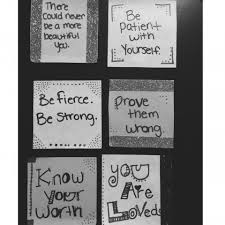 There
could never
be a more
beautiful
you.
Be
Patient
with
Yourself.
Be Fierce.
Be Strong.
Prove
them
wrong.
Know
your
worth
you
Are
Loved